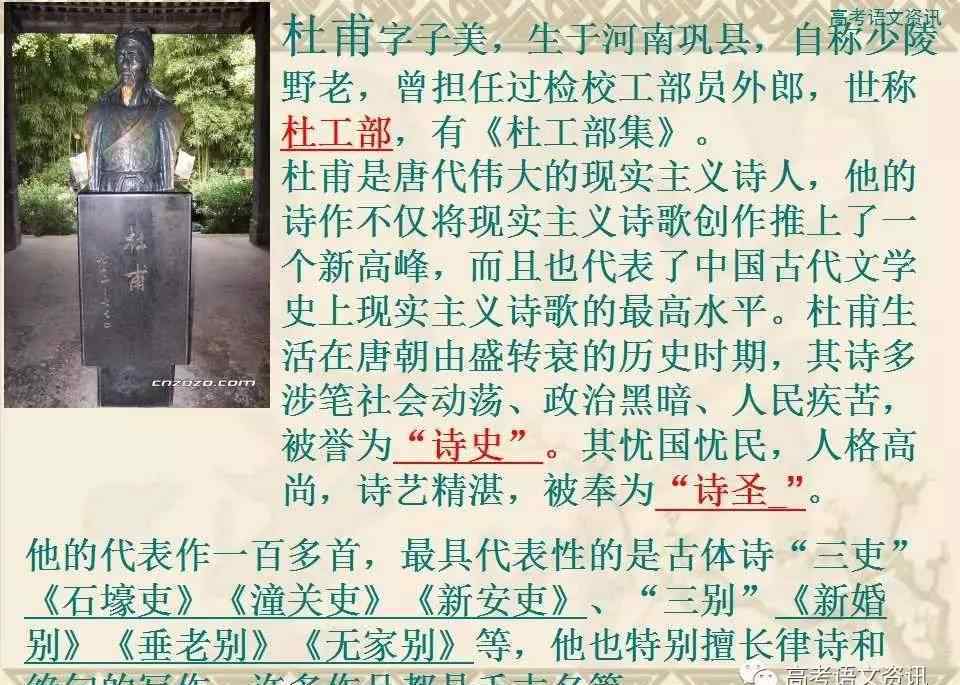 高考语文资讯
杜甫字子美，生于河南巩县，自称少陵
野老，曾担任过检校工部员外郎，世称
杜工部，有《杜工部集》。
杜甫是唐代伟大的现实主义诗人，他的
诗作不仅将现实主义诗歌创作推上了一
个新高峰，而且也代表了中国古代文学
史上现实主义诗歌的最高水平。杜甫生
活在唐朝由盛转衰的历史时期，其诗多
涉笔社会动荡、政治黑暗、人民疾苦，
被誉为“诗史”。其忧国忧民，人格高
尚，诗艺精湛，被奉为“诗圣_”。
杜
甫
cnzozo.com
他的代表作一百多首，最具代表性的是古体诗“三吏”
《石壕吏》《潼关吏》《新安吏》、“三别”《新婚
别》《垂老别》《无家别》等，他也特别擅长律诗和
绝句的写作，许多作品都是千古名篇
高考语文资讯